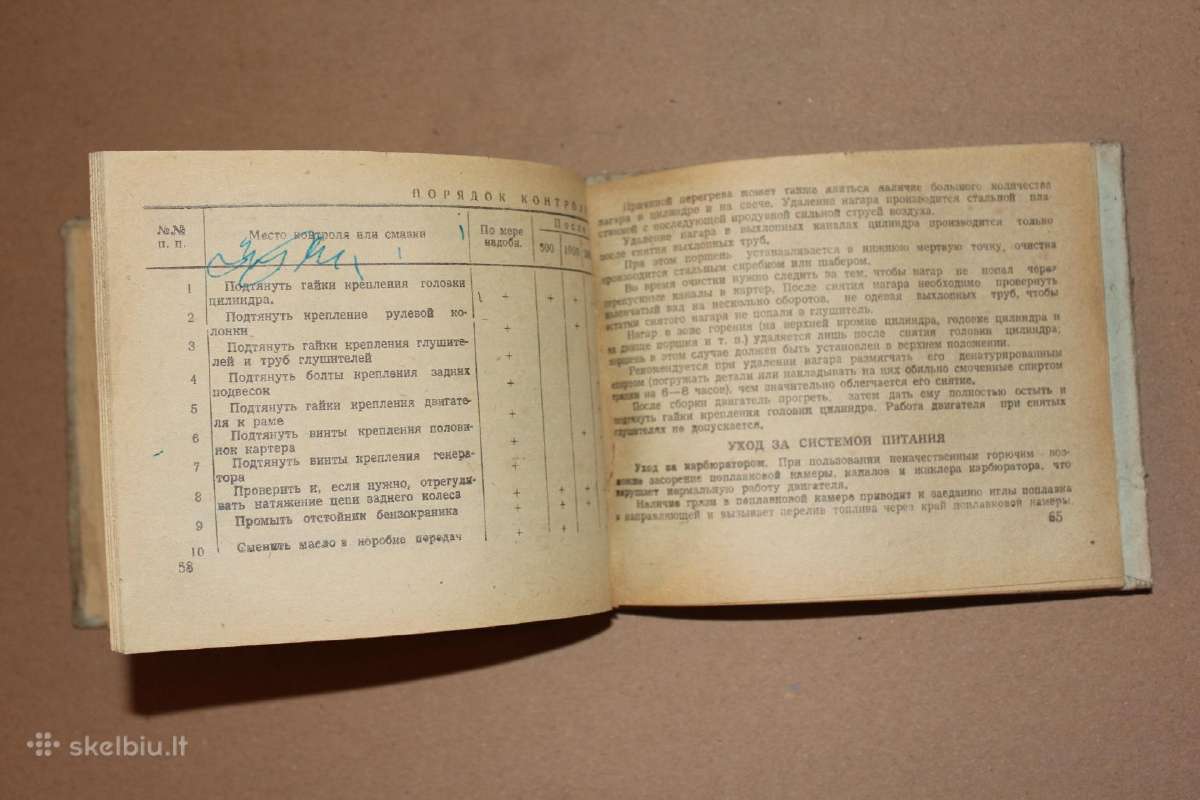 ПОРЯДОК КОНТРО
№№ п. п.
Место контроля или смазки
По мере надобн.
После
500
1000
1
Подтянуть гайки крепления головки
цилиндра.
+
+
+
2
Подтянуть крепление рулевой ко-
лонки
+
+
3
Подтянуть гайки крепления глушите-
лей и труб глушителей
+
4
Подтянуть болты крепления задних
подвесок
+
5
Подтянуть гайки крепления двигате-
ля к раме
+
6
Подтянуть винты крепления полови-
нок картера
+
+
7
Подтянуть винты крепления генера-
тора
+
8
Проверить и, если нужно, отрегули-
вать натяжение цепи заднего колеса
+
+
+
9
Промыть отстойник бензокраника
+
+
10
Сменить масло в коробке передач
+
58
Причиной перегрева может также явиться наличие большого количества
нагара в цилиндре и на свече. Удаление нагара производится стальной пла-
стинкой с последующей продувкой сильной струей воздуха.
Удаление нагара в выхлопных каналах цилиндра производится только
после снятия выхлопных труб.
При этом поршень устанавливается в нижнюю мертвую точку, очистка
производится стальным скребком или шабером.
Во время очистки нужно следить за тем, чтобы нагар не попал через
перепускные каналы в картер. После снятия нагара необходимо провернуть
коленчатый вал на несколько оборотов, не одевая выхлопных труб, чтобы
остатки снятого нагара не попали в глушитель.
Нагар в зоне горения (на верхней кромке цилиндра, головке цилиндра и
на днище поршня и т. п.) удаляется лишь после снятия головки цилиндра;
поршень в этом случае должен быть установлен в верхнем положении.
Рекомендуется при удалении нагара размягчать его денатурированным
спиртом (погружать детали или накладывать на них обильно смоченные спиртом
тряпки на 6—8 часов), чем значительно облегчается его снятие.
После сборки двигатель прогреть, затем дать ему полностью остыть и
подтянуть гайки крепления головки цилиндра. Работа двигателя при снятых
глушителях не допускается.
УХОД ЗА СИСТЕМОЙ ПИТАНИЯ
Уход за карбюратором. При пользовании некачественным горючим воз-
можно засорение поплавковой камеры, каналов и жиклера карбюратора, что
нарушает нормальную работу двигателя.
Наличие грязи в поплавковой камере приводит к заеданию иглы поплавка
в направляющей и вызывает перелив топлива через край поплавковой камеры.
65
skelbiu.lt